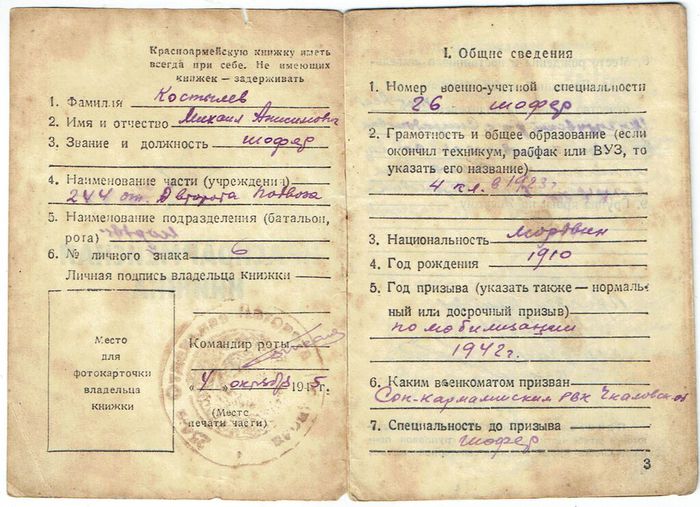 Красноармейскую книжку иметь
всегда при себе. Не имеющих
книжек — задерживать
1. Фамилия Костылев
2. Имя и отчество Михаил Анисимович
3. Звание и должность шофер
4. Наименование части (учреждения)
244 от. Автророта Подвоза
5. Наименование подразделения (батальон,
рота)
6. № личного знака 6
Личная подпись владельца книжки
Место
для
фотокарточки
владельца
книжки
Командир роты
„4" октября 1945
(Место
печати части)
I. Общие сведения
1. Номер военно-учетной специальности
26 шофер
2. Грамотность и общее образование (если
окончил техникум, рабфак или ВУЗ, то
указать его название)
4 кл. в 1923 г.
3. Национальность Мордвин
4. Год рождения 1910
5. Год призыва (указать также — нормаль-
ный или досрочный призыв)
по мобилизации
1942 г.
6. Каким военкоматом призван
Сок-Кармалинским РВК Чкаловск. об
7. Специальность до призыва
шофер
3